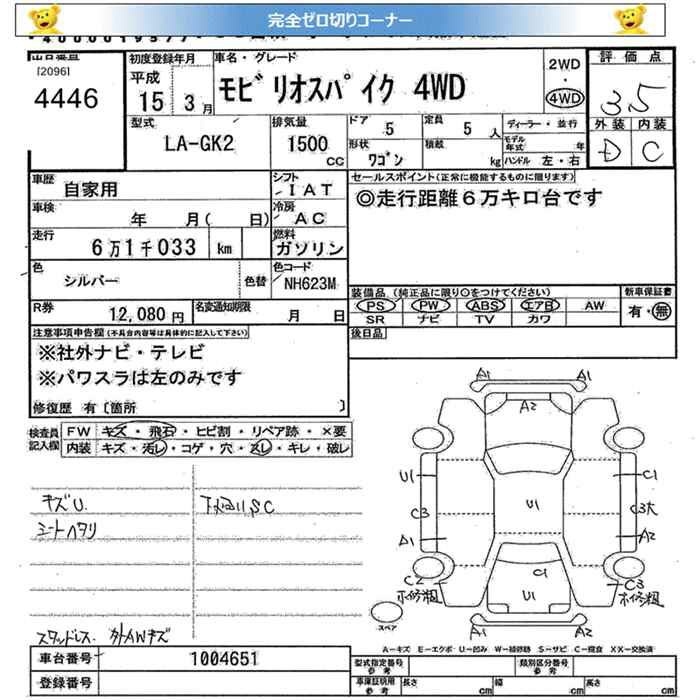 完全ゼロ切りコーナー
[2096]
4446
初度登録年月
平成
15 3 月
車名・グレード
モビリオスパイク 4WD
2WD
・
4WD
評価点
3.5
外装 内装
D C
型式
LA-GK2
排気量
1500
CC
ドア 5
定員 5 人
形状 ワゴン
積載 kg
ディーラー・並行
モデル年式 年
ハンドル 左・右
車歴 自家用
シフト IAT
車検 年 月( 日)
冷房 AC
走行 6万1千033 km
燃料 ガソリン
色 シルバー
色替
色コード NH623M
R券 12,080 円
名変通知期限 月 日
セールスポイント(正常に機能するものに限ります)
◎走行距離6万キロ台です
装備品 (純正品に限り○をつけてください)
PS PW ABS エアB AW
SR ナビ TV カワ
新車保証書
有・無
後日品
注意事項申告欄(不具合内容等は具体的に記入して下さい)
※社外ナビ・テレビ
※パワスラは左のみです
修復歴 有〔箇所 〕
検査員記入欄
FW キズ・飛石・ヒビ割・リペア跡・×要
内装 キズ・汚レ・コゲ・穴・スレ・キレ・破レ
キズU.
シートヘタリ
下廻りS,C
スタッドレス. 外AWキズ
車台番号 1004651
登録番号
A1 A1
A2
U1 C1
U1
C3 C3大
A1 A2
C1
C2 C3
ホ修粗 U1 ホ修粗
スペア
A1 A1
A－キズ E－エクボ U－凹み W－補修跡 S－サビ C－腐食 XX－交換済
型式指定番号 参考
類別区分番号 参考
車庫証明用 参考
長さ cm 幅 cm 高さ cm